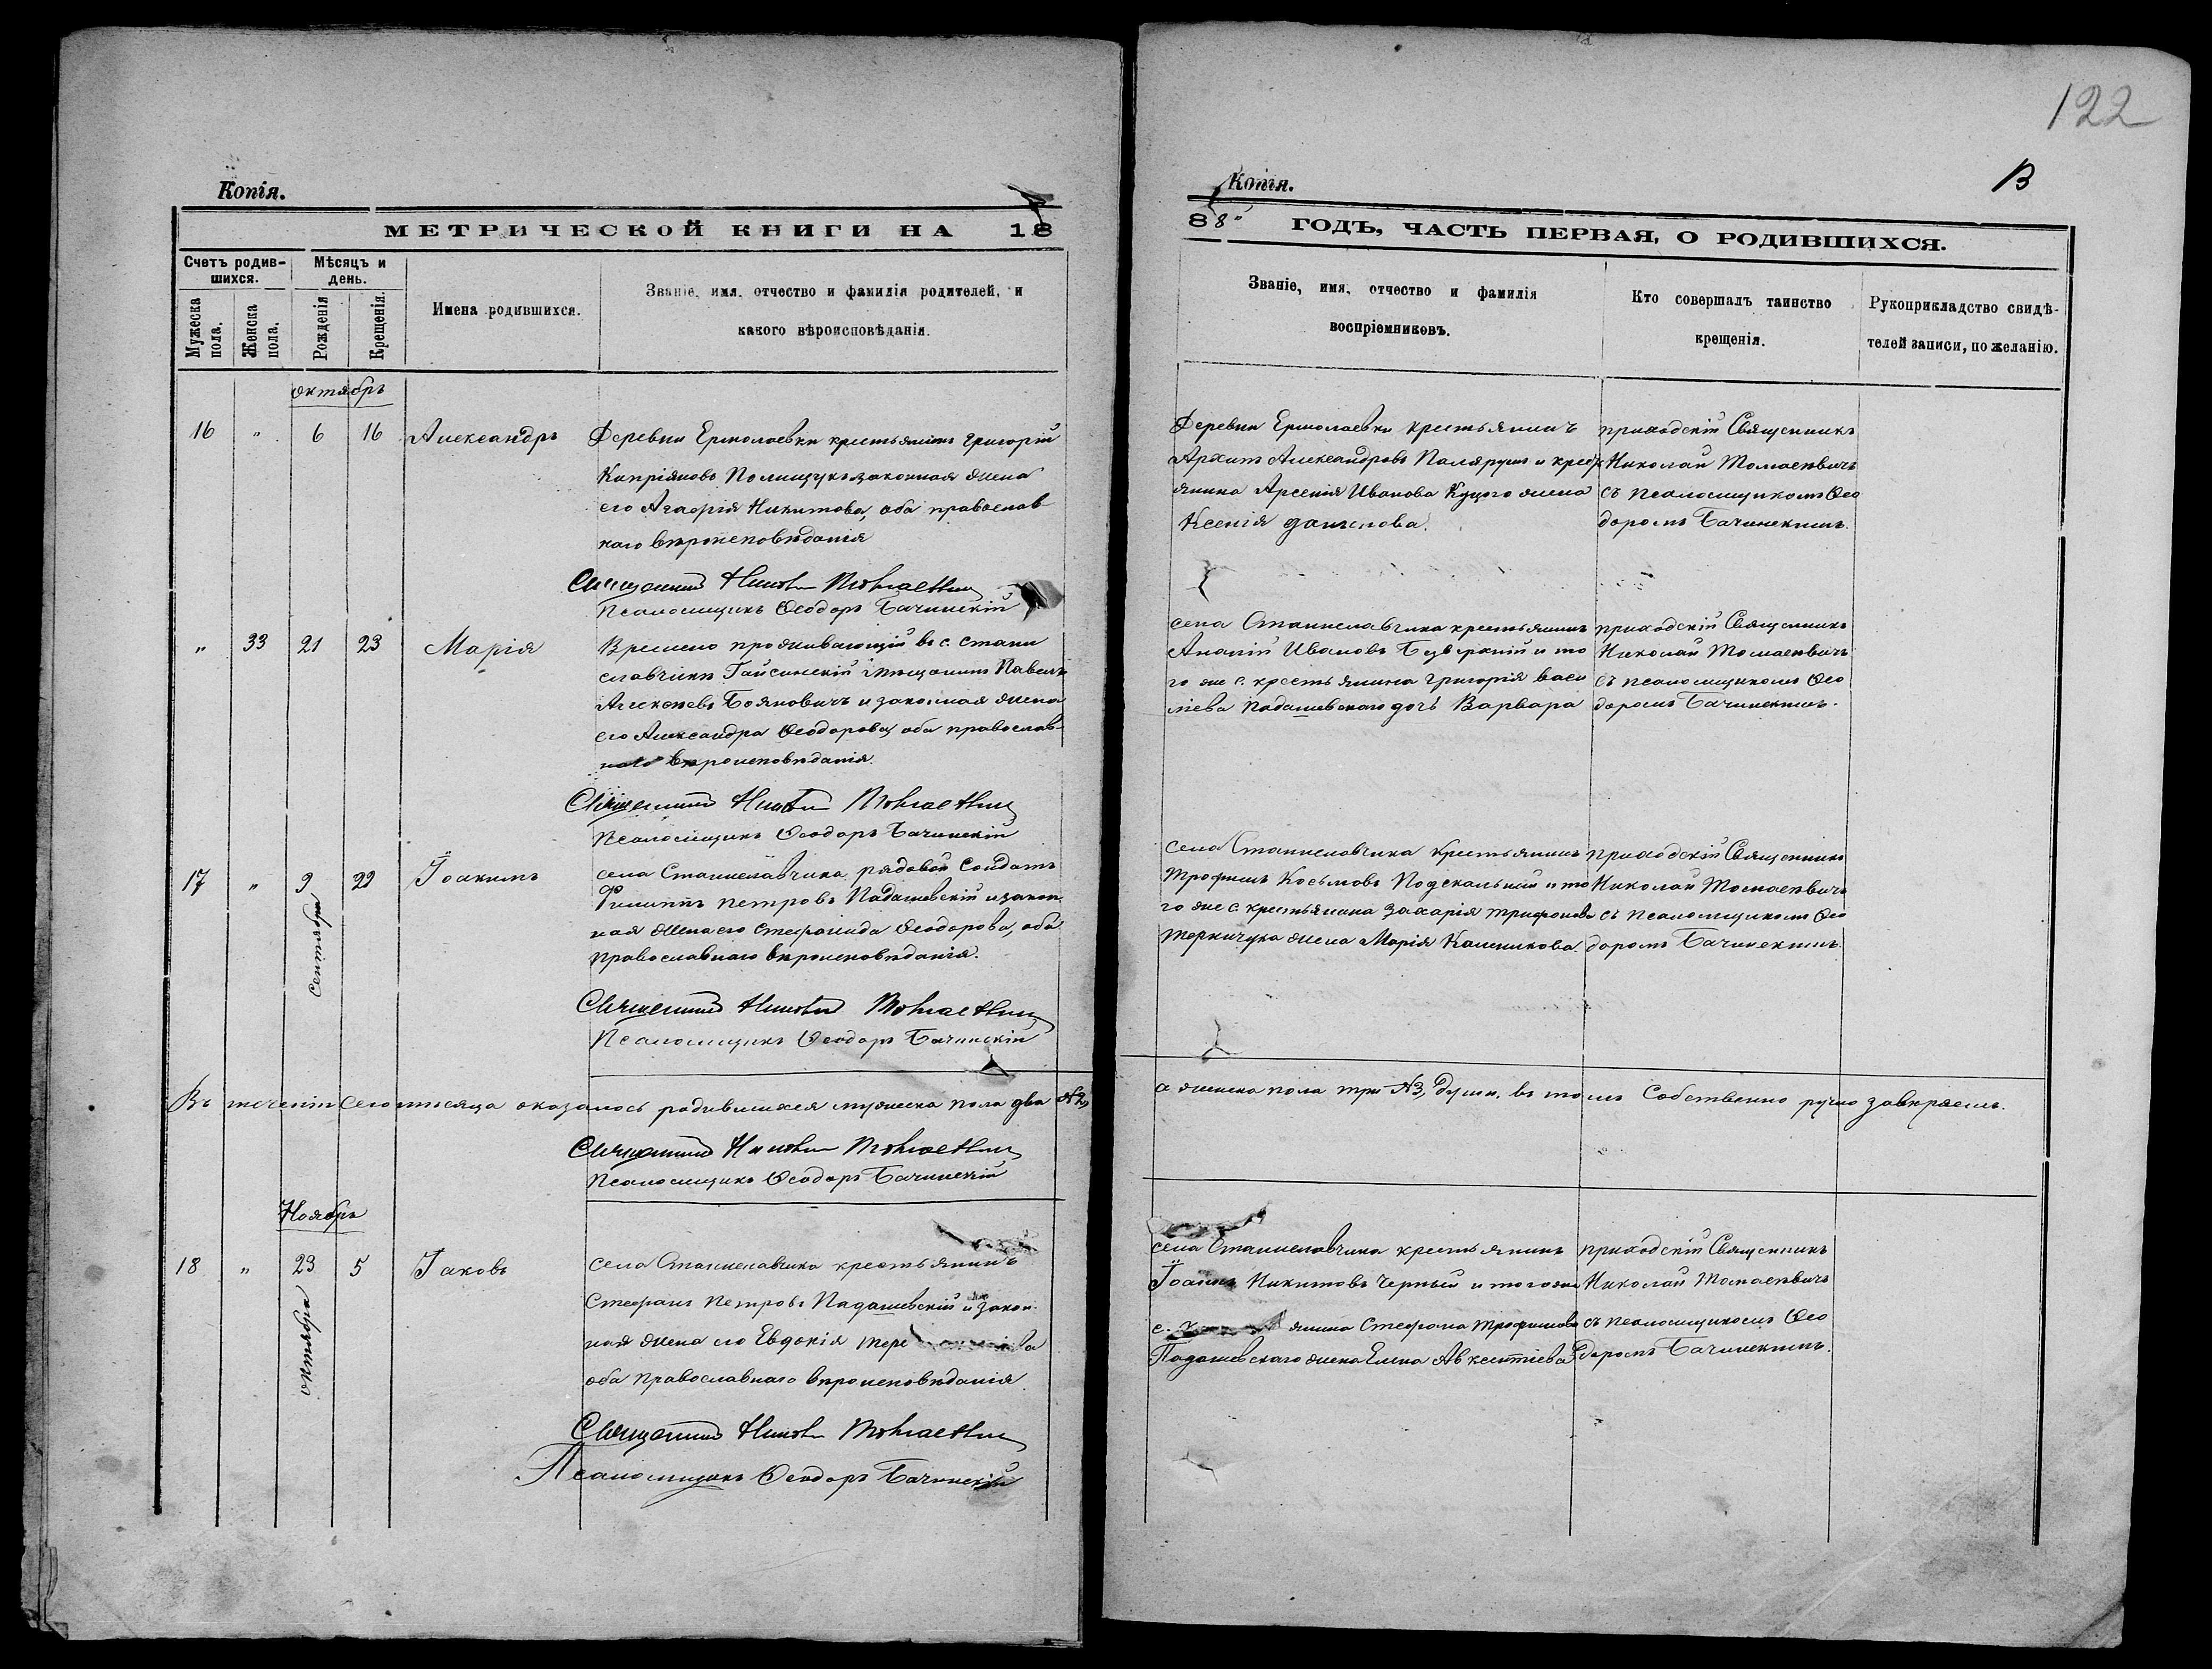 Копія.
МЕТРИЧЕСКОЙ КНИГИ НА 18
Счетъ родив-
шихся.
Мѣсяцъ и
день.
Мужеска пола.
Женска пола.
Рожденія
Крещенія.
Имена родившихся.
Званіе, имя, отчество и фамилія родителей, и
какого вѣроисповѣданія.
октябрь
16 " 6 16 Александръ
Деревни Ермолаевки крестьянинъ Григорій
Кипріяновъ Полищукъ законная жена
его Агафія Никитова, оба православ
наго вѣроисповѣданія
Священникъ Николай Томасевичъ
Псаломщикъ Ѳеодоръ Бачинскій
" 33 21 23 Марія
Времено проживающій въ с. Стани
славчикѣ Гайсинскій мѣщанинъ Павелъ
Алексѣевъ Бояновичъ и законная жена
его Александра Ѳеодорова, оба православ-
наго вѣроисповѣданія.
Священникъ Николай Томасевичъ
Псаломщикъ Ѳеодоръ Бачинскій
17 " 9 22 Іоакимъ
Сентября
села Станиславчика рядовой Солдатъ
Филиппъ Петровъ Падашевскій и закон
ная жена его Стефанида Ѳеодорова, оба
православнаго вѣроисповѣданія.
Священникъ Николай Томасевичъ
Псаломщикъ Ѳеодоръ Бачинскій
Въ теченіи Сего мѣсяца оказалось родившихся мужеска пола два №2,
Священникъ Николай Томасевичъ
Псаломщикъ Ѳеодоръ Бачинскій
Ноябрь
18 " 23 5 Іаковъ
октября
села Станиславчика крестьянинъ
Стефанъ Петровъ Падашевскій и закон
ная жена его Евдокія
оба православнаго вѣроисповѣданія
Священникъ Николай Томасевичъ
Псаломщикъ Ѳеодоръ Бачинскій
122
Копія.
В
88" ГОДЪ, ЧАСТЬ ПЕРВАЯ, О РОДИВШИХСЯ.
Званіе, имя, отчество и фамилія
воспріемниковъ.
Кто совершалъ таинство
крещенія.
Рукоприкладство свидѣ-
телей записи, по желанію.
Деревни Ермолаевки крестьянинъ
Архипъ Александровъ Палярушъ и крест
янина Арсенія Иванова Куцого жена
Ксенія Данилова.
приходскій Священникъ
Николай Томасевичъ
съ псаломщикомъ Ѳео
доромъ Бачинскимъ.
села Станиславчика крестьянинъ
Ананій Ивановъ и то
го же с. крестьянина Григорія Васи
лiева Падашевскаго дочь Варвара
приходскій Священникъ
Николай Томасевичъ
съ псаломщикомъ Ѳео
доромъ Бачинскимъ.
села Станиславчика крестьянинъ
Трофимъ Косьмовъ Подскальный и то
го же с. крестьянина Захарія Трифонова
Теркичука жена Марія Калиникова.
приходскій Священникъ
Николай Томасевичъ
съ псаломщикомъ Ѳео
доромъ Бачинскимъ.
а женска пола три №3, душъ. въ томъ Собственно ручно завѣряемъ.
села Станиславчика крестьянинъ
Іоаннъ Никитовъ Черный и того же
с. янина Стефана Трофимова
Падашевскаго жена Елена Авксентіева
приходскій Священникъ
Николай Томасевичъ
съ псаломщикомъ Ѳео
доромъ Бачинскимъ.